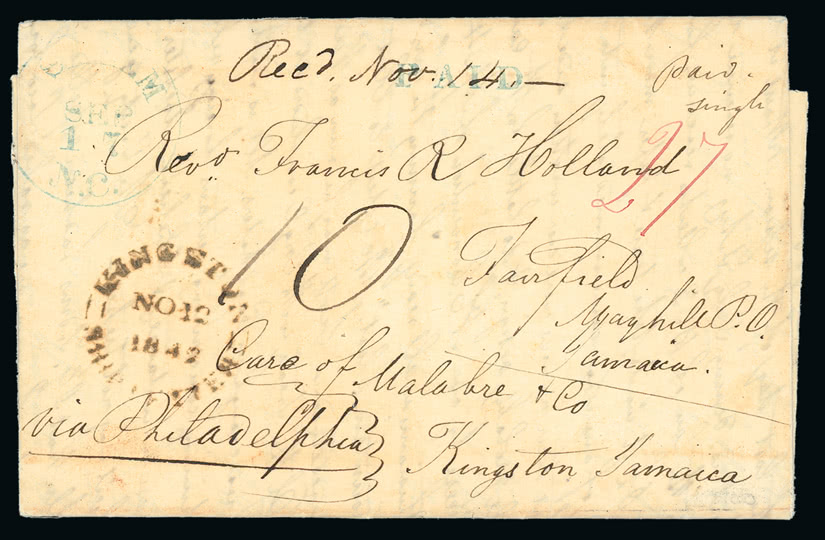 Recd. Nov. 14 —
PAID
paid.
single
SEP
17
N.C.
Revd. Francis R Holland
27
10
Fairfield
Mayhill P.O.
Jamaica.
KINGSTON
NO 12
1842
SHIP LETTER
Care of Malabre & Co
via Philadelphia
Kingston Jamaica